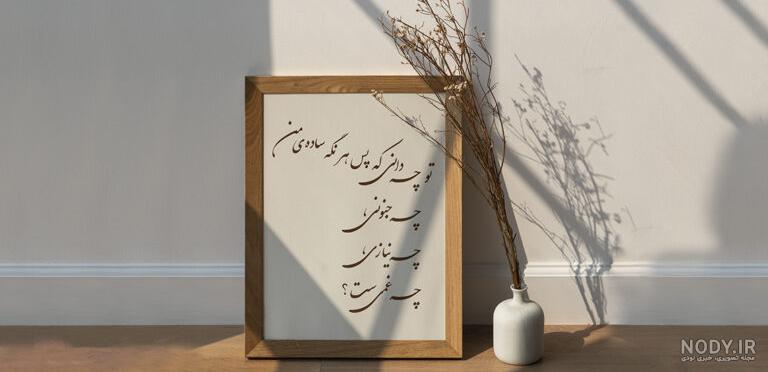 تو چه دانی که پس هر نگه ساده‌ی من
چه جنونی،
چه نیازی،
چه غمی ست؟
NODY.IR
مجله تصویری، خبری نودی